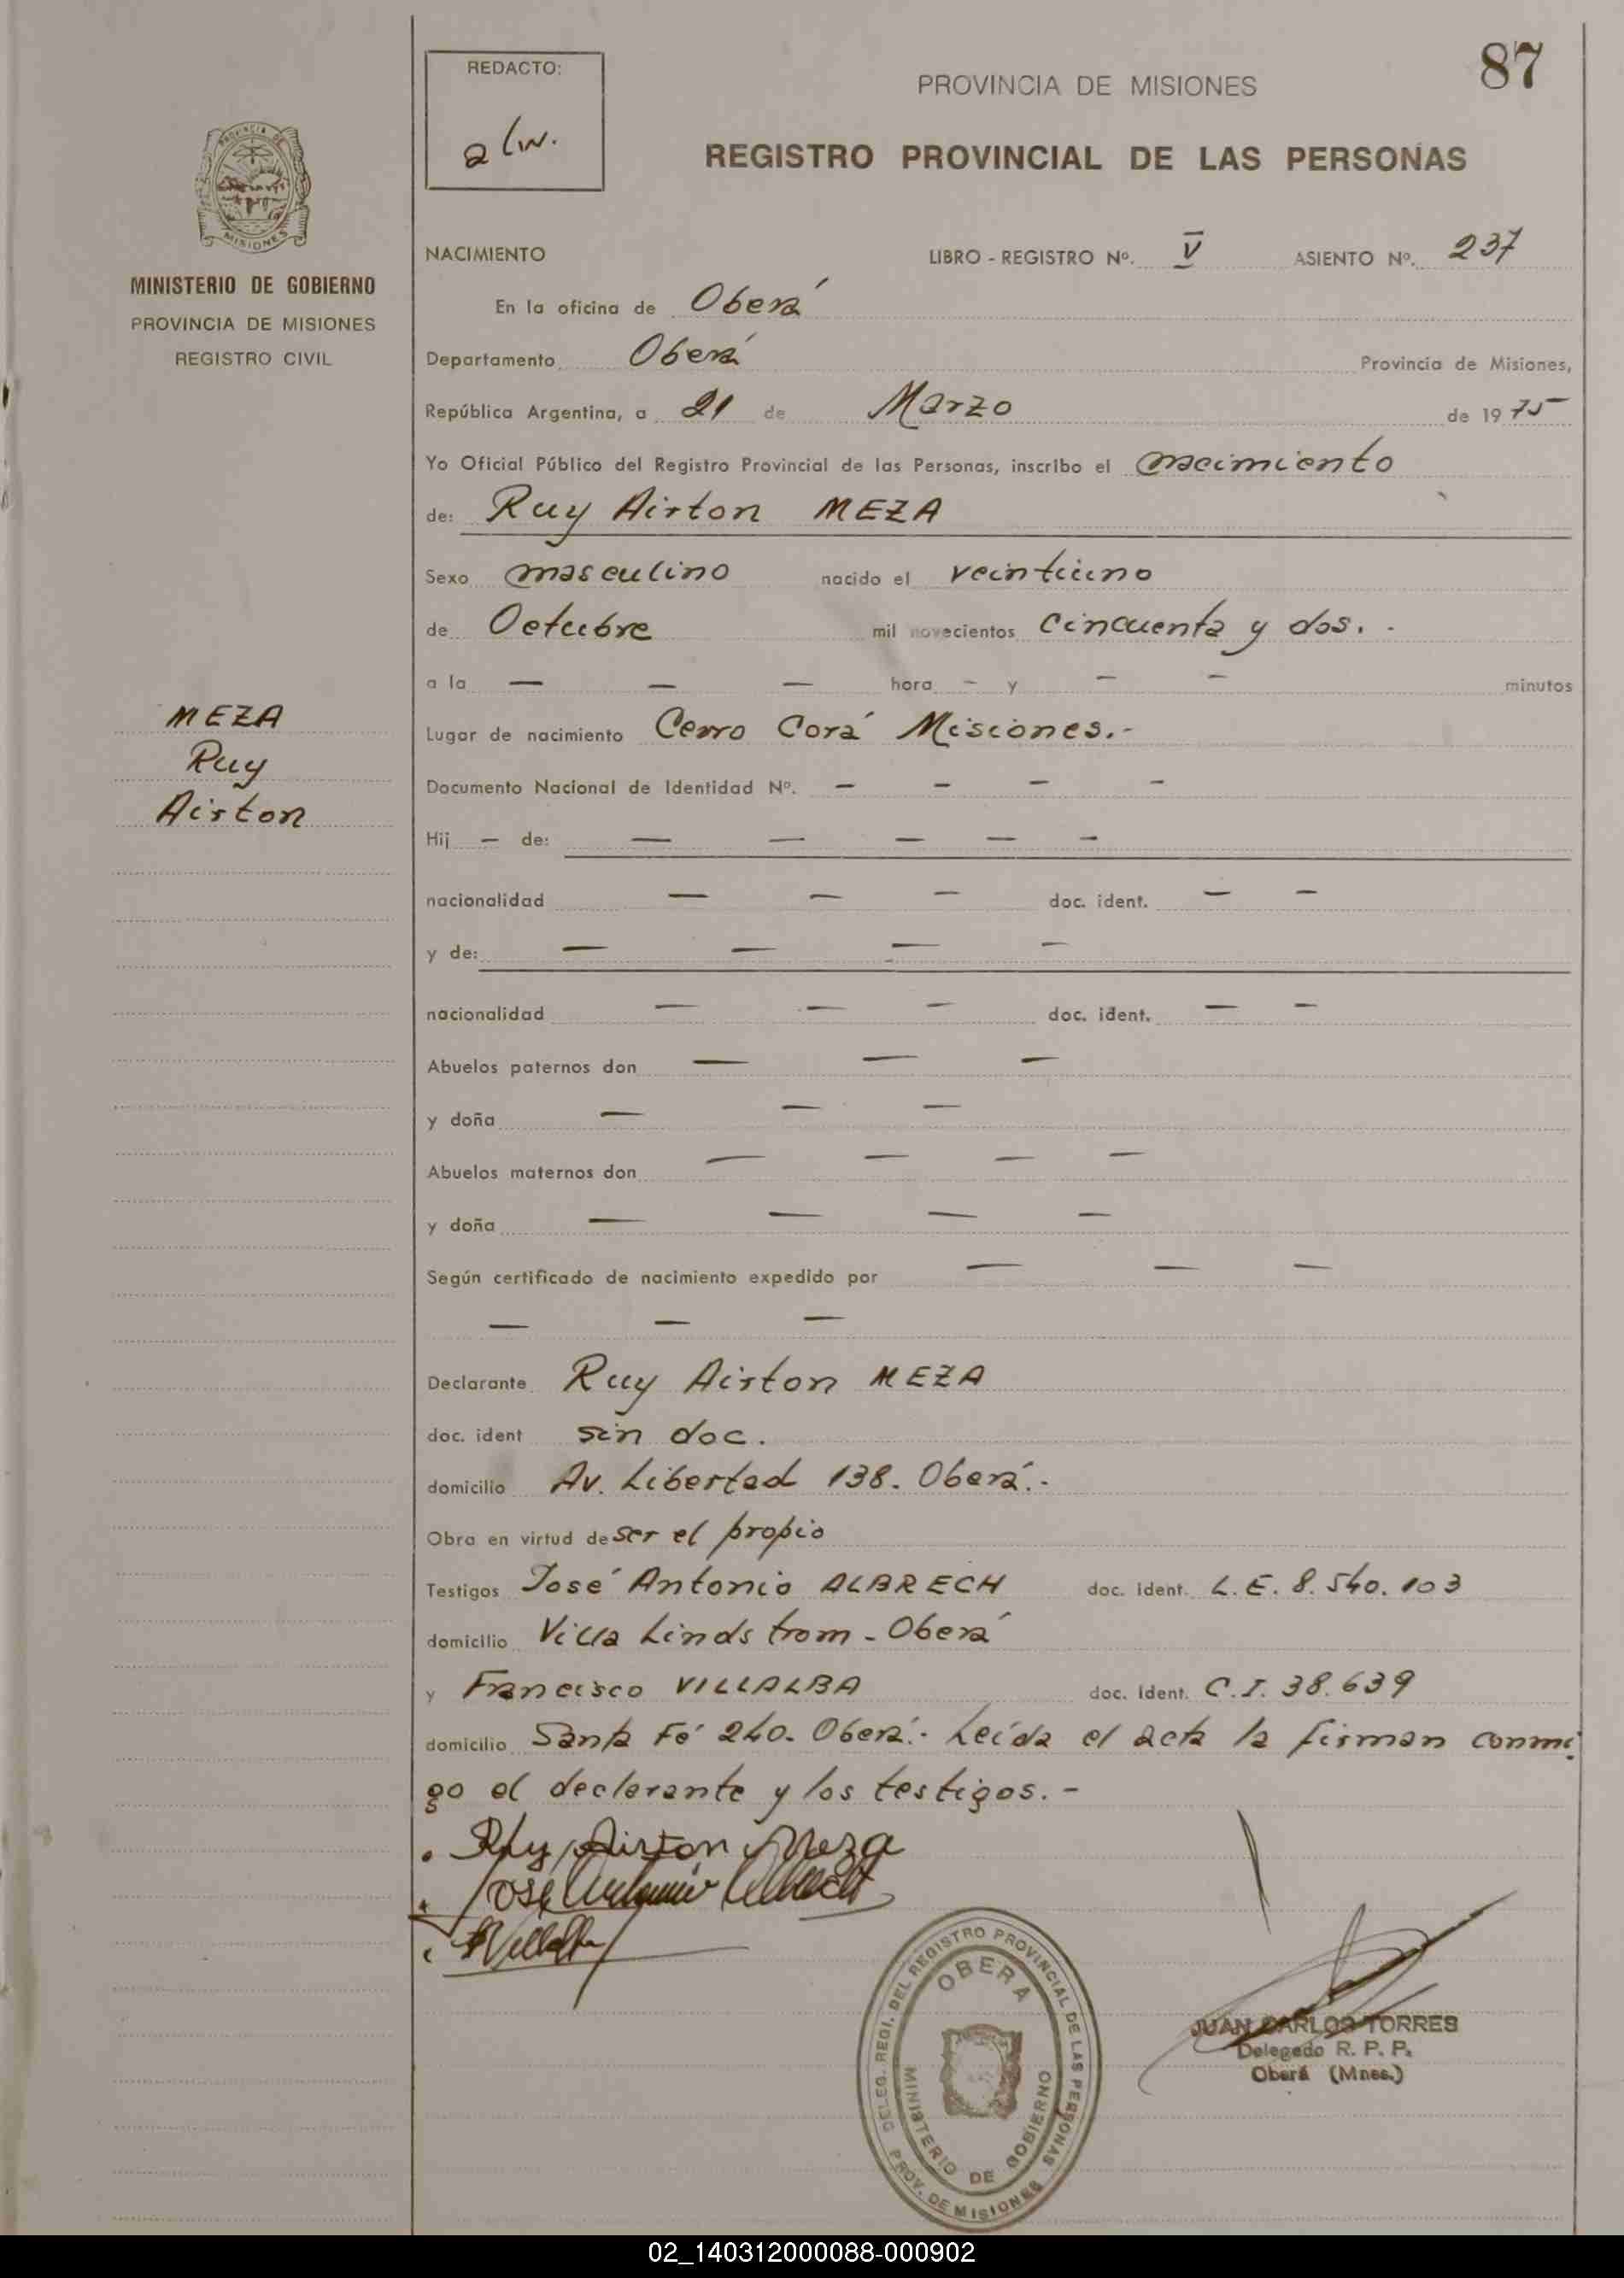 87
REDACTO:
PROVINCIA DE MISIONES
REGISTRO PROVINCIAL DE LAS PERSONAS
PROVINCIA DE
MISIONES
MINISTERIO DE GOBIERNO
PROVINCIA DE MISIONES
REGISTRO CIVIL
NACIMIENTO LIBRO - REGISTRO Nº. V ASIENTO Nº. 237
En la oficina de Oberá
Departamento Oberá Provincia de Misiones,
República Argentina, a 21 de Marzo de 1975
Yo Oficial Público del Registro Provincial de las Personas, inscribo el nacimiento
de: Ruy Airton MEZA
Sexo masculino nacido el veintiuno
de Octubre mil novecientos cincuenta y dos. -
a la — — — hora - y - - minutos
MEZA
Ruy
Airton
Lugar de nacimiento Cerro Corá Misiones.-
Documento Nacional de Identidad Nº. - - - -
Hij - de: — — — — -
nacionalidad — — — doc. ident. — —
y de: — — — —
nacionalidad — — — doc. ident. — —
Abuelos paternos don — — —
y doña — — —
Abuelos maternos don — — — —
y doña — — — —
Según certificado de nacimiento expedido por — — —
— — —
Declarante Ruy Airton MEZA
doc. ident sin doc.
domicilio Av. Libertad 138. Oberá.-
Obra en virtud de ser el propio
Testigos José Antonio ALBRECH doc. ident. L.E. 8.540.103
domicilio Villa Lindstrom - Oberá
y Francisco VILLALBA doc. ident. C.I. 38.639
domicilio Santa Fé 240. Oberá.- Leída el acta la firman conmi
go el declarante y los testigos. -
Ruy Airton Meza
José Antonio Albrech
F Villalba
DELEG. REGI. DEL REGISTRO PROVINCIAL DE LAS PERSONAS
OBERA
MINISTERIO DE GOBIERNO
PROV. DE MISIONES
JUAN CARLOS TORRES
Delegado R. P. P.
Oberá (Mnes.)
02_140312000088-000902